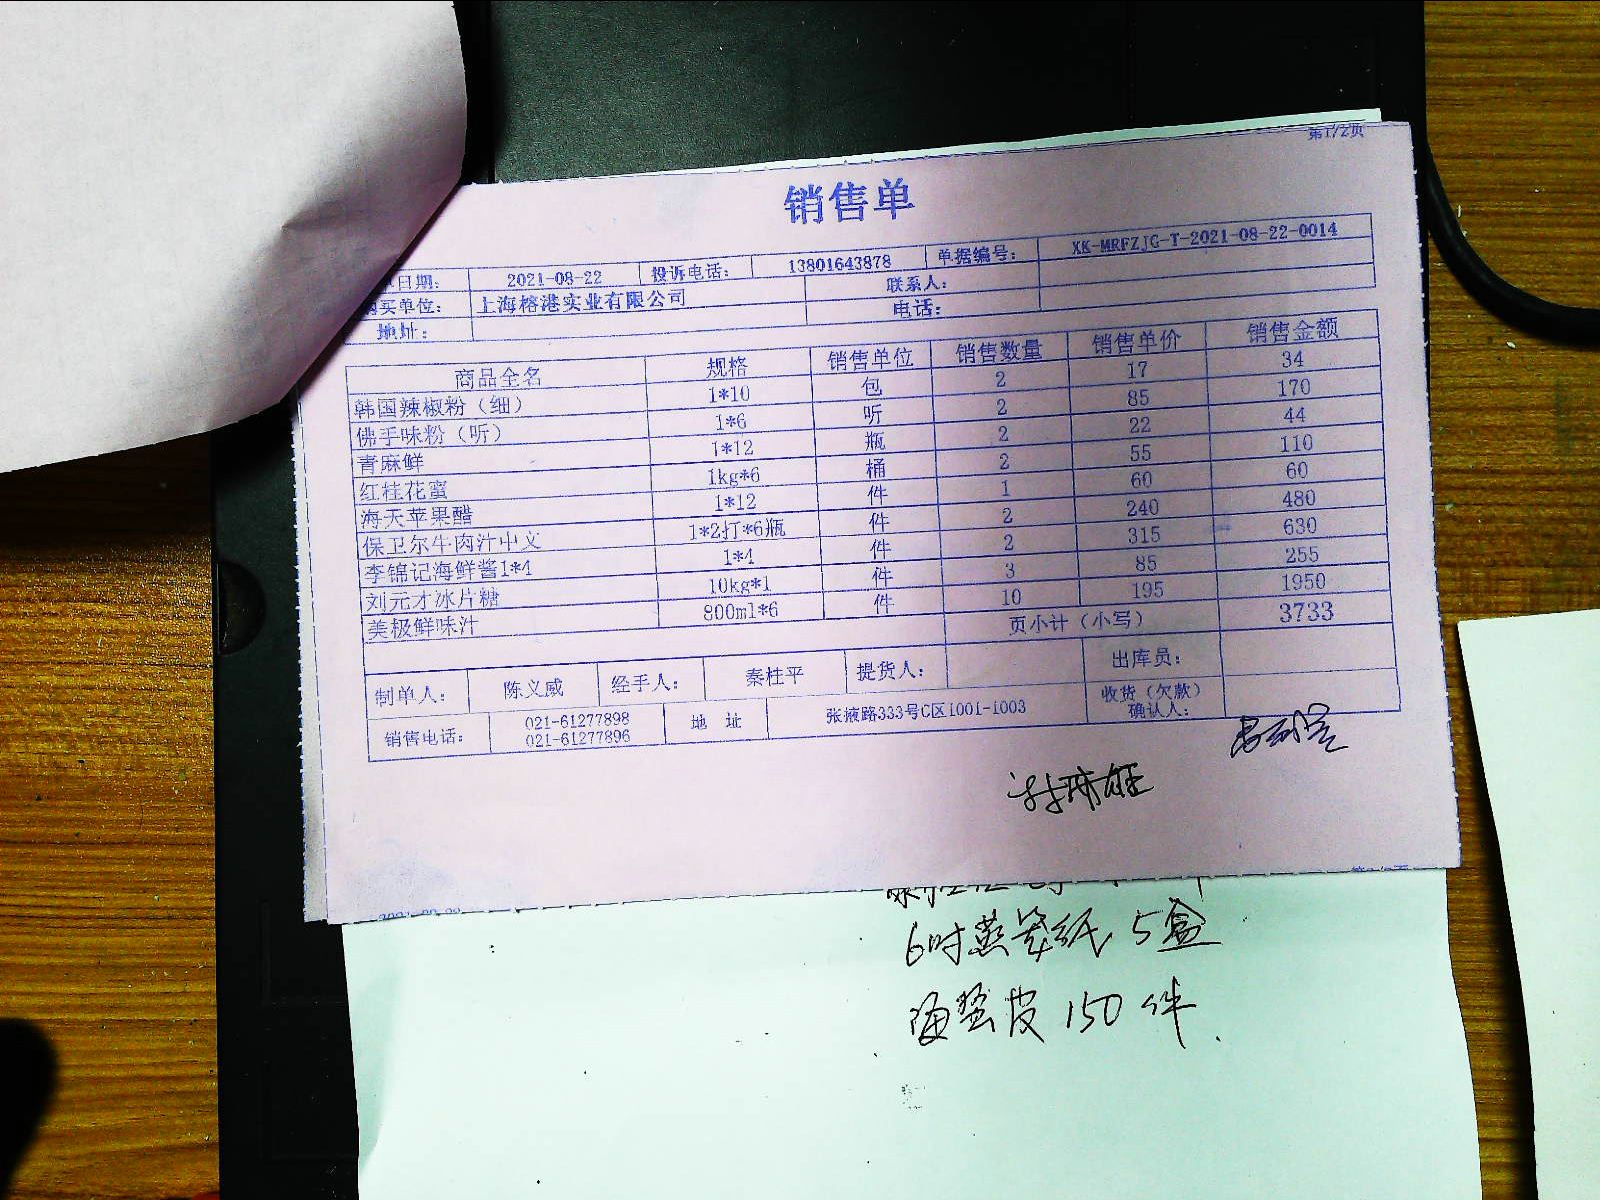 第1/2页
销售单
日期: 2021-08-22 投诉电话: 13801643878 单据编号: XK-MRFZJG-T-2021-08-22-0014
购买单位: 上海榕港实业有限公司 联系人:
地址: 电话:
商品全名 规格 销售单位 销售数量 销售单价 销售金额
韩国辣椒粉(细) 1*10 包 2 17 34
佛手味粉(听) 1*6 听 2 85 170
青麻鲜 1*12 瓶 2 22 44
红桂花蜜 1kg*6 桶 2 55 110
海天苹果醋 1*12 件 1 60 60
保卫尔牛肉汁中文 1*2打*6瓶 件 2 240 480
李锦记海鲜酱1*4 1*4 件 2 315 630
刘元才冰片糖 10kg*1 件 3 85 255
美极鲜味汁 800ml*6 件 10 195 1950
页小计(小写) 3733
制单人: 陈义威 经手人: 秦桂平 提货人: 出库员:
销售电话: 021-61277898 021-61277896 地 址 张掖路333号C区1001-1003 收货(欠款)确认人:
6吋蒸笼纸 5盒
海蜇皮 150件